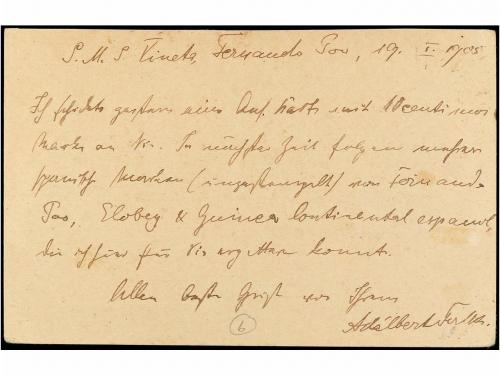 S. M. S Vineta, Fernando Poo, 19. I. 1905
Ich schickte gestern eine Ans. Karte mit 10 centimos
Marke an Sie. In nächster Zeit folgen mehrere
spanische Marken (ungestempelt) von Fernando
Poo, Elobey & Guinea Continental espanol,
die ich hier für Sie ergattern konnte.
Allen beste Grüße von Ihrem
Adalbert
6